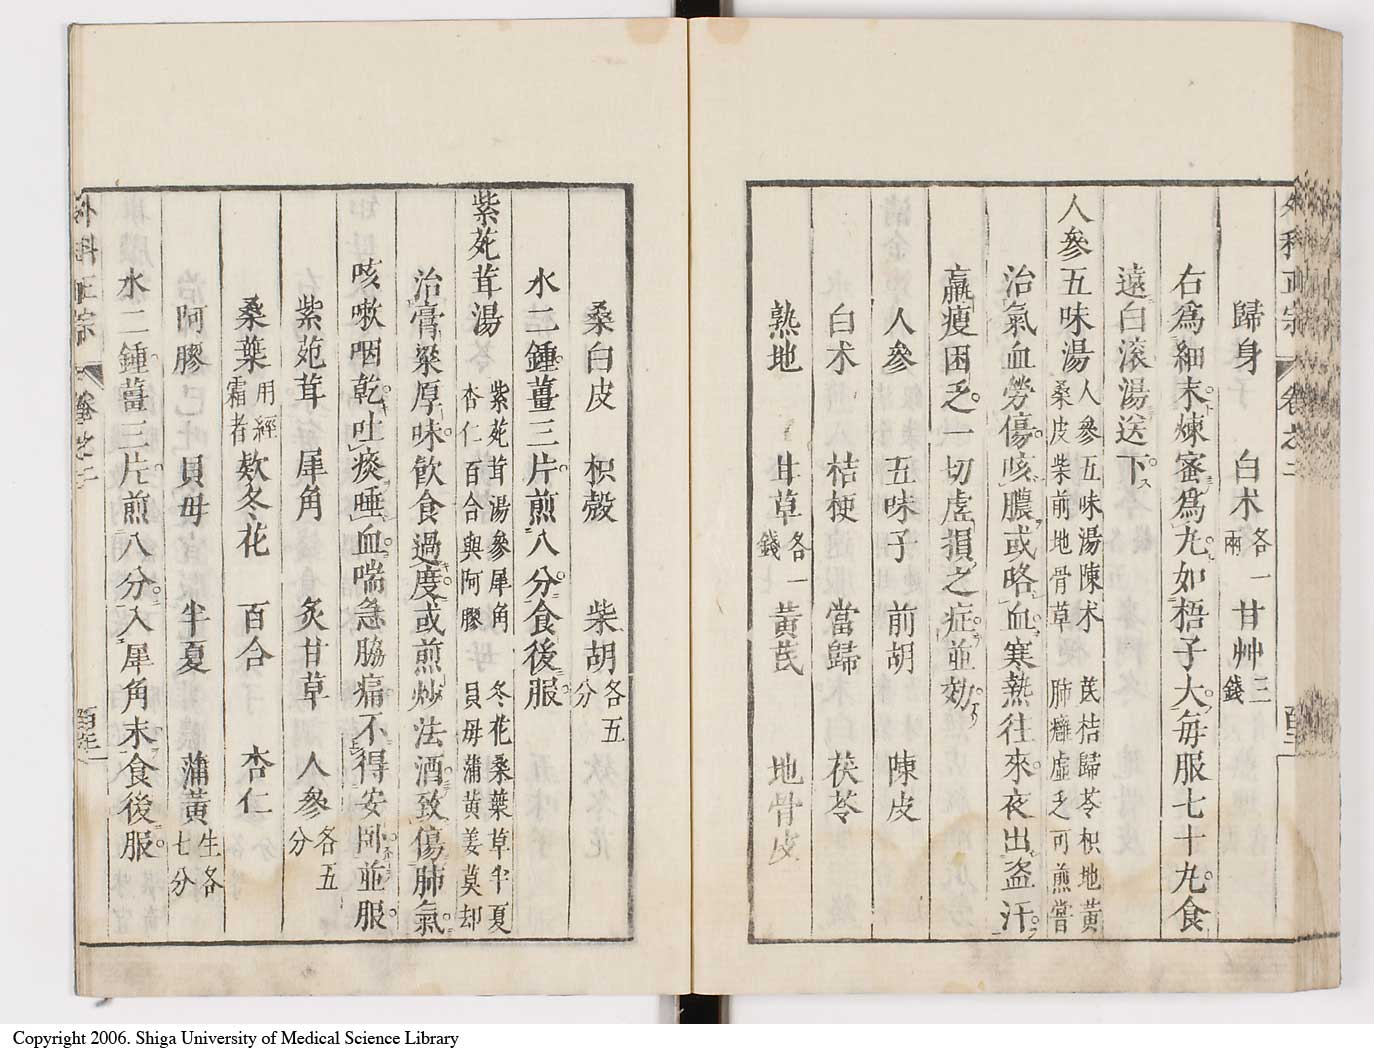 外科正宗 卷之二
歸身 白朮各一兩 甘艸三錢
右爲細末煉蜜爲丸如梧子大每服七十丸食
遠白滾湯送下
人參五味湯 人參五味湯陳朮 芪桔歸苓枳地黃 桑皮柴前地骨草 肺癰虛乏可煎嘗
治氣血勞傷咳膿或咯血寒熱往來夜出盜汗
羸瘦困乏一切虛損之症並効
人參 五味子 前胡 陳皮
白朮 桔梗 當歸 茯苓
熟地 甘草各一錢 黃芪 地骨皮
桑白皮 枳殼 柴胡各五分
水二鍾薑三片煎八分食後服
紫苑茸湯 紫苑茸湯參犀角 冬花桑葉草半夏 杏仁百合與阿膠 貝母蒲黃姜莫却
治膏粱厚味飮食過度或煎炒法酒致傷肺氣
咳嗽咽乾吐痰唾血喘急脇痛不得安卧並服
紫苑茸 犀角 炙甘草 人參各五分
桑葉用經霜者 欵冬花 百合 杏仁
阿膠 貝母 半夏 蒲黃生各七分
水二鍾薑三片煎八分入犀角末食後服
外科正宗 卷之二
Copyright 2006. Shiga University of Medical Science Library